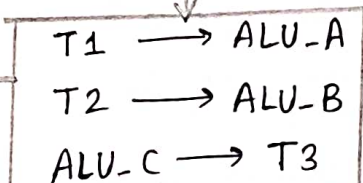 T1 ⟶ ALU_A
T2 ⟶ ALU_B
ALU_C ⟶ T3